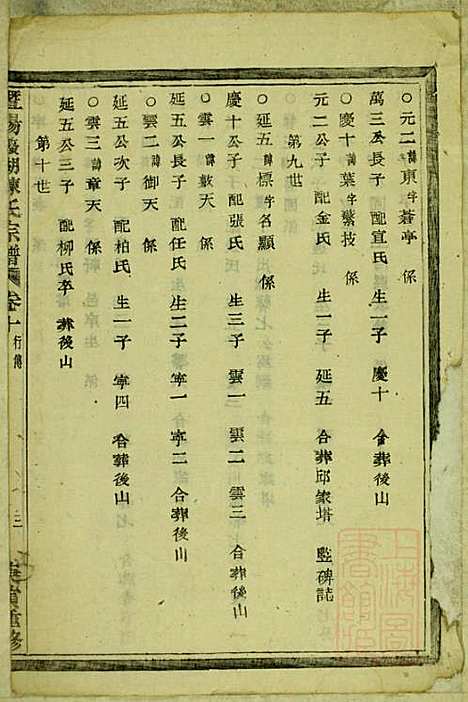 ○元二諱東字蒼亭 係
萬三公長子 配宣氏 生一子 慶十 合葬後山
○慶十諱葉字繁技 係
元二公子 配金氏 生一子 延五 合葬邱家塔 竪碑誌
第九世
○延五諱標字名顯 係
慶十公子 配張氏 生三子 雲一 雲二 雲三 合葬後山
○雲一諱敼天 係
延五公長子 配任氏 生二子 寧一 寧二 合葬後山
○雲二諱御天 係
延五公次子 配柏氏 生一子 寧四 合葬後山
○雲三諱章天 係
延五公三子 配柳氏卒 葬後山
第十世
暨陽 湖陳氏宗譜 卷十 行傳 三 重修
上海圖書館藏